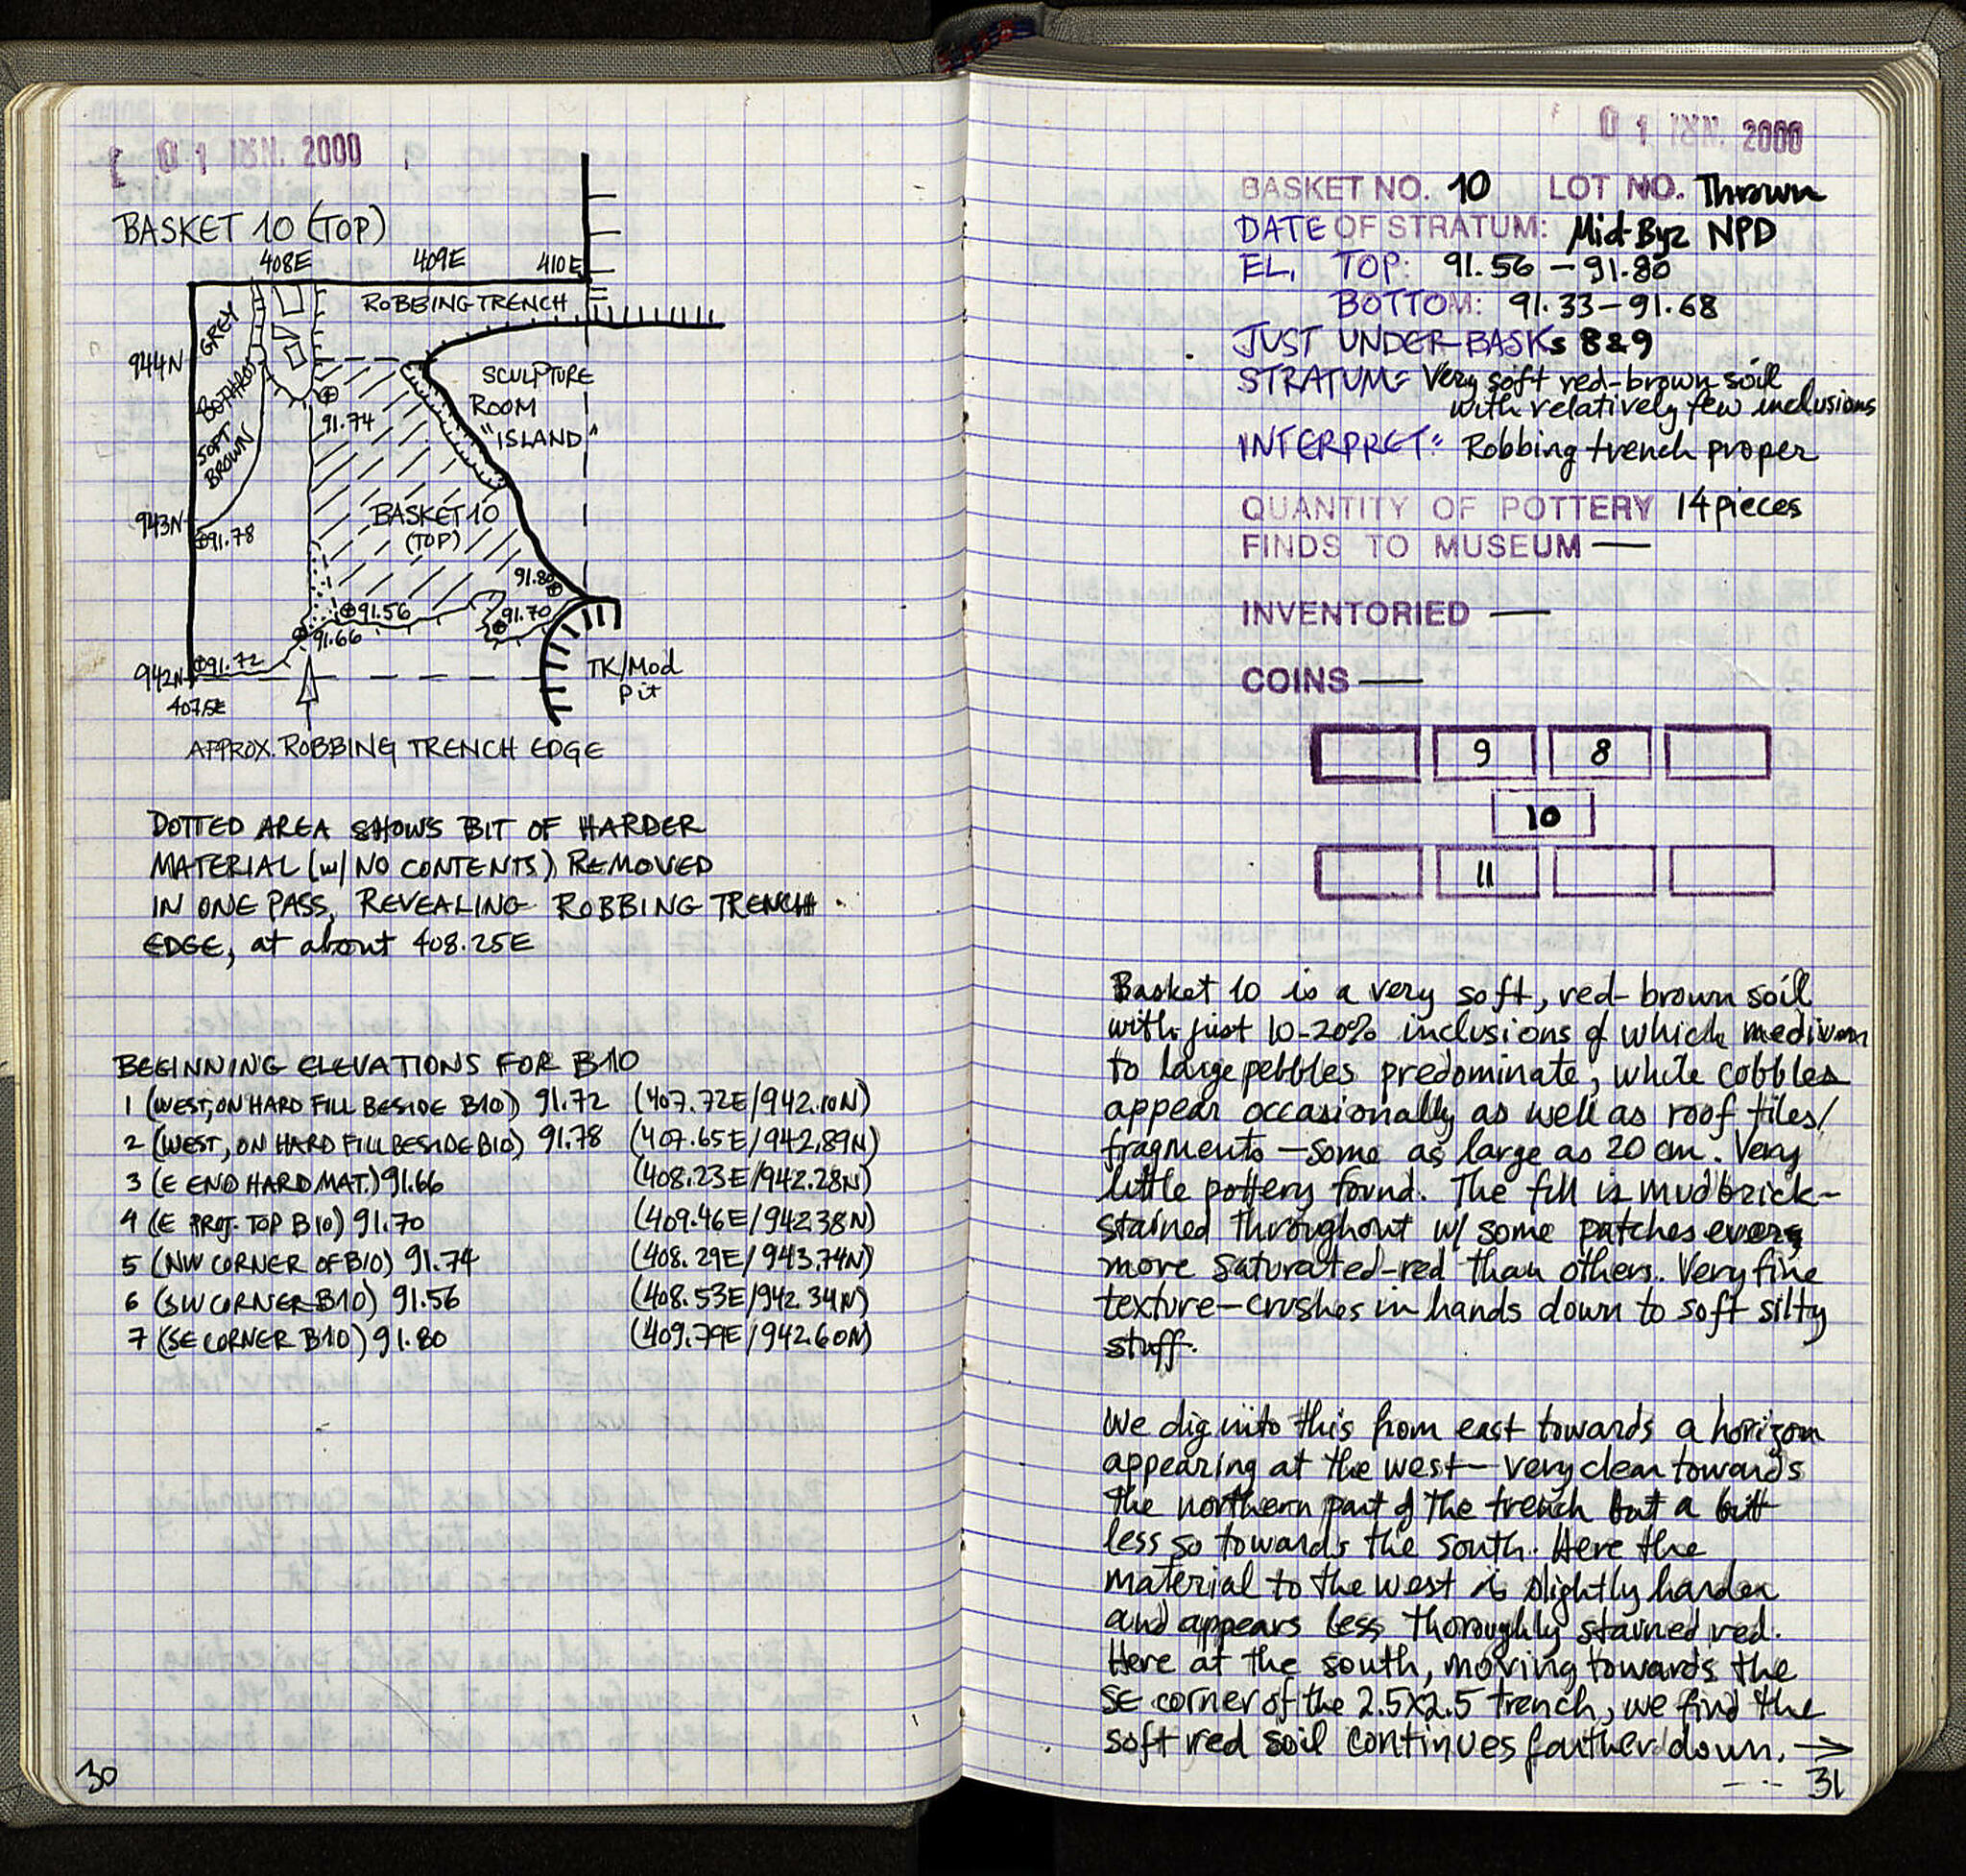 01 ΙΟΥΝ. 2000
BASKET 10 (TOP)
408E 409E 410E
ROBBING TRENCH
GREY
BOTHROS
SOFT
BROWN
944N
SCULPTURE
ROOM
"ISLAND"
91.74
943N
91.78
BASKET 10
(TOP)
91.80
91.56
91.70
91.66
91.72
942N
407.5E
TK/Mod
pit
APPROX. ROBBING TRENCH EDGE
DOTTED AREA SHOWS BIT OF HARDER
MATERIAL (w/ NO CONTENTS) REMOVED
IN ONE PASS, REVEALING ROBBING TRENCH
EDGE, at about 408.25E
BEGINNING ELEVATIONS FOR B10
1 (WEST, ON HARD FILL BESIDE B10) 91.72 (407.72E/942.10N)
2 (WEST, ON HARD FILL BESIDE B10) 91.78 (407.65E/942.89N)
3 (E END HARD MAT.) 91.66 (408.23E/942.28N)
4 (E PROJ. TOP B10) 91.70 (409.46E/942.38N)
5 (NW CORNER OF B10) 91.74 (408.29E/943.74N)
6 (SW CORNER B10) 91.56 (408.53E/942.34N)
7 (SE CORNER B10) 91.80 (409.79E/942.60N)
30
01 ΙΟΥΝ. 2000
BASKET NO. 10 LOT NO. Thrown
DATE OF STRATUM: Mid Byz NPD
EL. TOP: 91.56 – 91.80
BOTTOM: 91.33 – 91.68
JUST UNDER BASKs 8&9
STRATUM: Very soft red-brown soil
with relatively few inclusions
INTERPRET: Robbing trench proper
QUANTITY OF POTTERY 14 pieces
FINDS TO MUSEUM —
INVENTORIED —
COINS —
9 8
10
11
Basket 10 is a very soft, red-brown soil
with just 10-20% inclusions of which medium
to large pebbles predominate; white cobbles
appear occasionally as well as roof tiles/
fragments – some as large as 20 cm. Very
little pottery found. The fill is mudbrick-
stained throughout w/ some patches
more saturated-red than others. Very fine
texture – crushes in hands down to soft silty
stuff.
We dig into this from east towards a horizon
appearing at the west – very clear towards
the northern part of the trench but a bit
less so towards the south. Here the
material to the west is slightly harder
and appears less thoroughly stained red.
Here at the south, moving towards the
SE corner of the 2.5x2.5 trench, we find the
soft red soil continues farther down. →
31